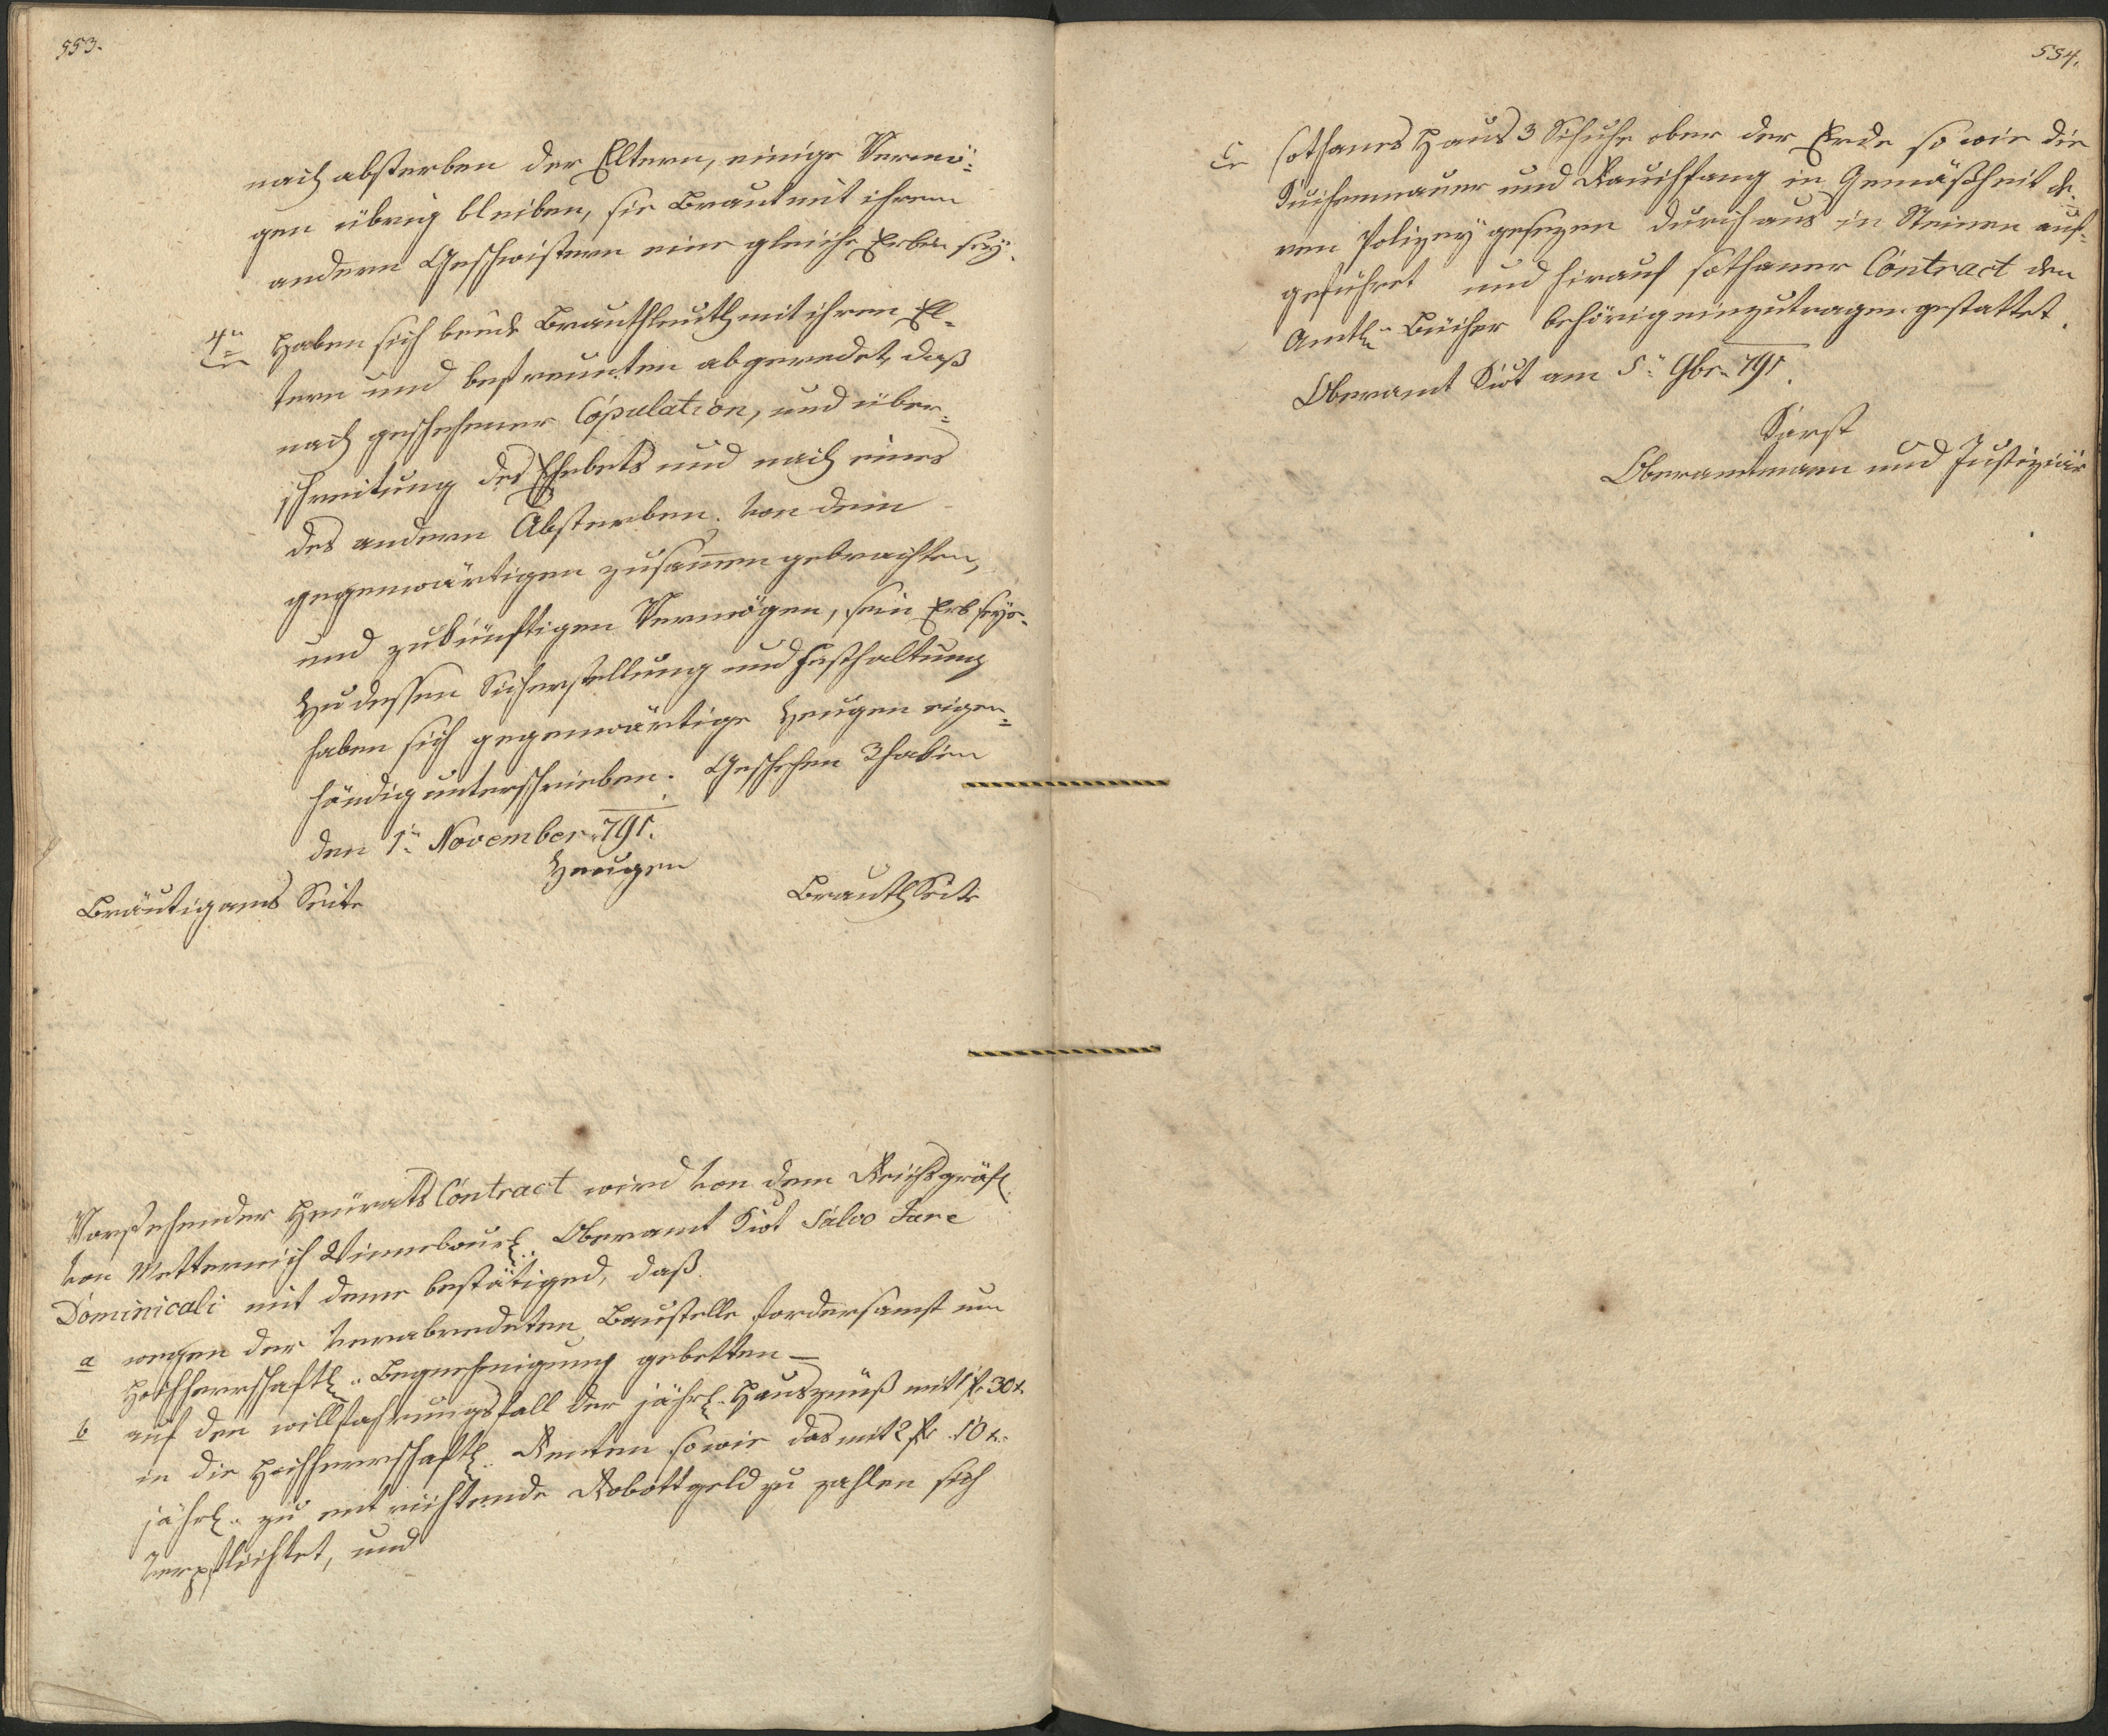 553.
nach absterben der Eltern, einige Vermö=
gen übrig bleiben, sie Braut mit ihrem
andern Geschwistern eine gleiche Erben sey.
4tn Haben sich beÿde Brauthleuth mit ihren El=
tern und befreunten abgeredet, daß
nach geschehener Copulation, und über=
schreitung des Ehebets und nach eines
des andern Absterben. von dem
gegenwärtigen zusamen gebrachten,
und zukünftigen Vermögen, sein Erb seÿe.
Zu dessen Sicherstellung und Festhaltung
haben sich gegenwärtige Zeugen eigen=
händig unterschrieben. Geschehen
den 1tn November 791.
Zeugen
Bräutigams Seite
Brauth Seite
Vorstehender Heürats Contract wird von dem Reichsgräfl.
von Metternich Winnebourl. Oberamt Kiot Salvo Jure
Dominicali mit deme bestätiged, daß
a wegen der verabredeten Baustelle fordersamst um
Hochherrschaftl. Begnehmigung gebetten —
b auf den willfahrungsfall der jährl. Hauszünß mit 1 f 30 x.
in die Hochherrschaftl. Renten sowie das mit 2 f 10 x.
jährl. zu entrichtende Robottgeld zu zahlen sich
verpflichtet, und
554.
c sothanes Haus 3 Schuhe ober der Erde so wie die
Küchenmauer und Rauchfang in Gemäßheit de=
ren Polizeÿ gesezen durchaus in Steinen auf=
geführet und hierauf sothaner Contract den
Amtl. Bücher behörig einzutragen gestattet.
Oberamt Kiot am 5tn 9br. 791.
Karst
Oberamtmann und Justiziär